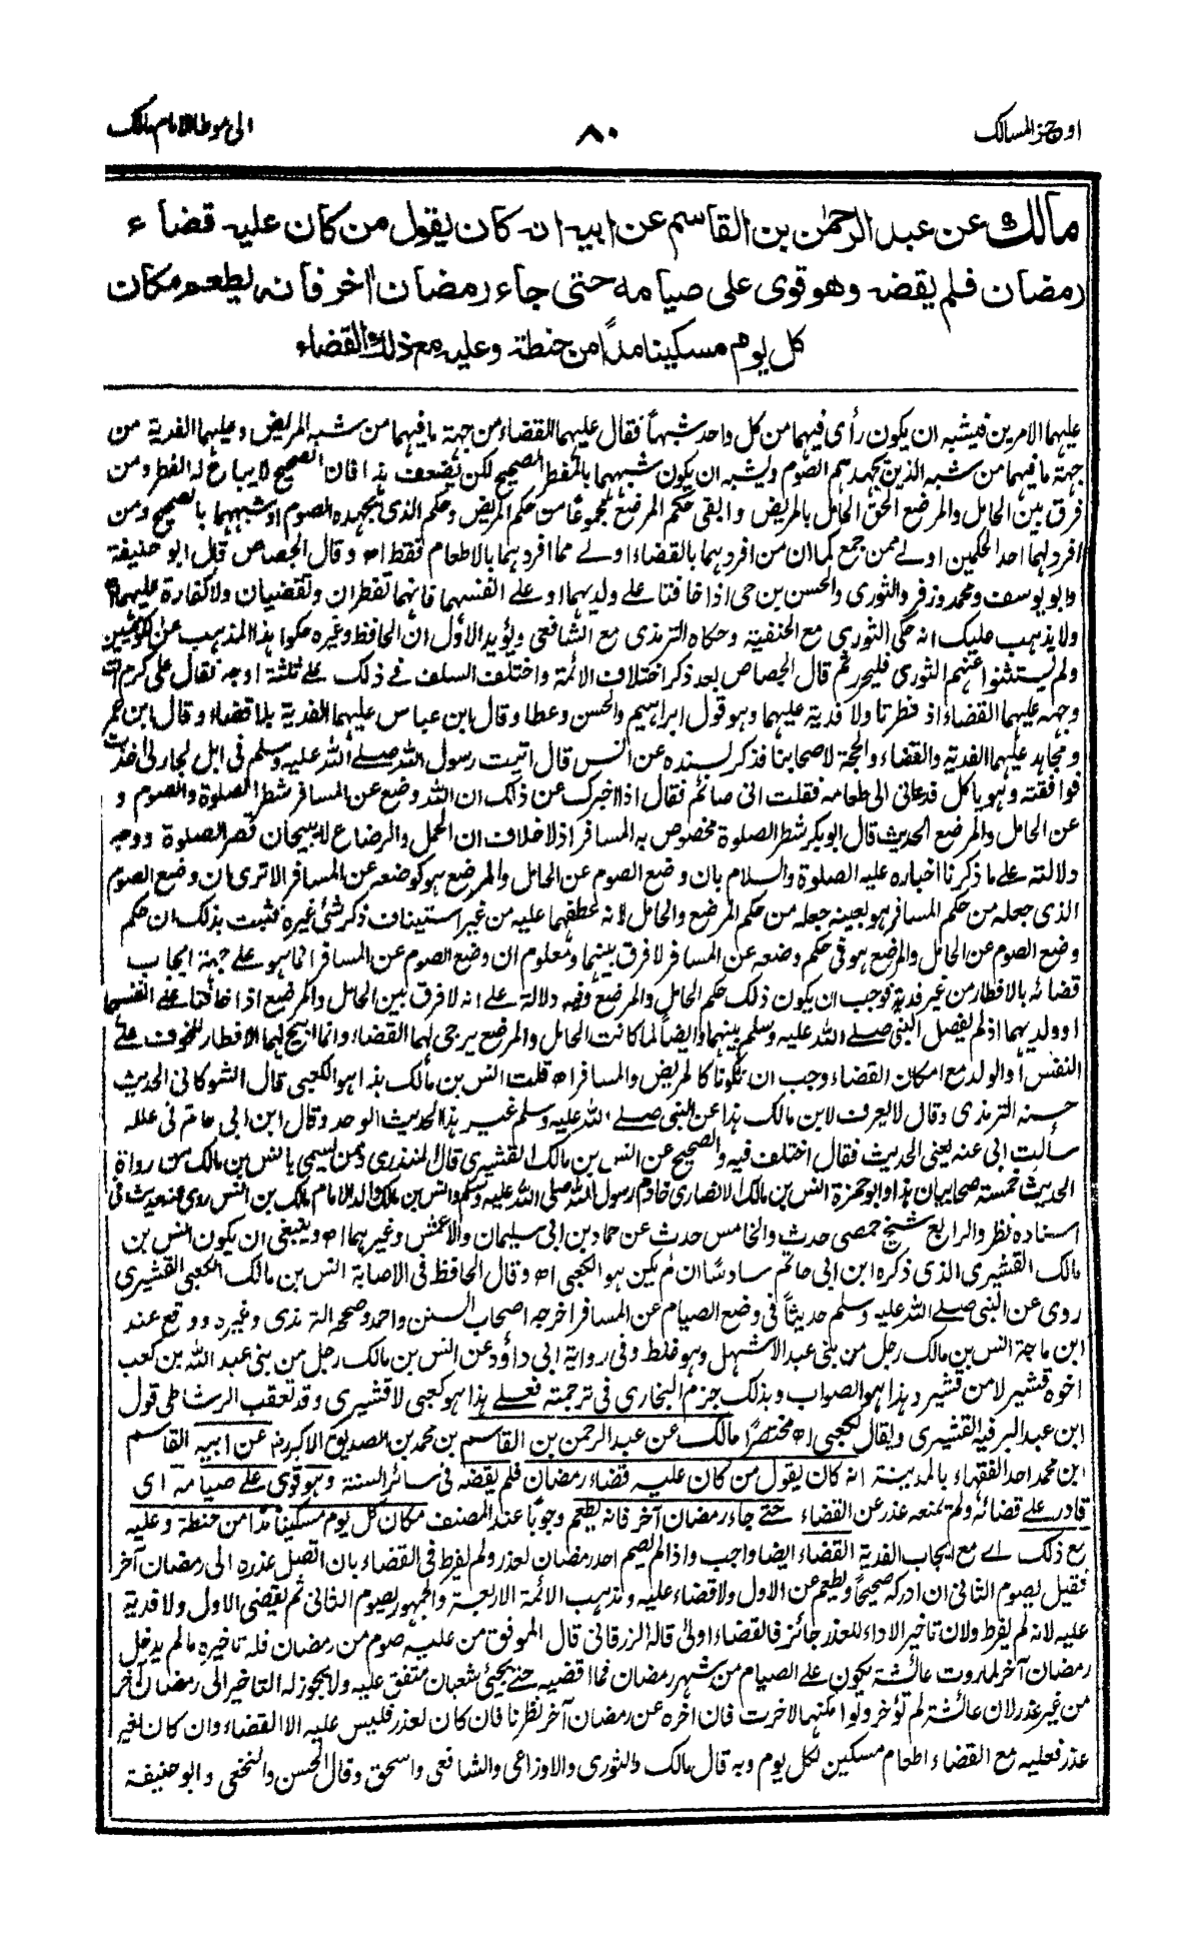 اوجز المسالك ٨٠ الى موطا الامام مالك
مالك عن عبد الرحمٰن بن القاسم عن ابيه انه كان يقول من كان عليه قضاء
رمضان فلم يقضه وهو قوى على صيامه حتى جاء رمضان اخر فانه يطعم مكان
كل يوم مسكينا مدًا من حنطة وعليه مع ذلك القضاء
عليهما الامرين فيشبه ان يكون رأى فيهما من كل واحد شبهاً فقال عليهما القضاء من جهة ما فيهما من شبه المريض وعليهما الفدية من
جهة ما فيهما من شبه الذين يجهدهم الصوم ويشبه ان يكون شبههما بالمفطر الصحيح لكن يضعف هذا فان الصحيح لا يباح له الفطر ومن
فرق بين الحامل والمرضع الحق الحامل بالمريض وابقى حكم المرضع مجموعًا من حكم المريض وحكم الذى يجهده الصوم او شبههما بالصحيح ومن
افرد لهما احد الحكمين اولے ممن جمع كما ان من افردهما بالقضاء اولے مما افردهما بالاطعام فقط اه وقال الجصاص قال ابو حنيفة
وابو يوسف ومحمد وزفر والثورى والحسن بن حى اذا خافتا علے ولديهما او علے انفسهما فانهما تفطران وتقضيان ولا كفارة عليهما اه
ولا يذهب عليك انه حكى الثورى مع الحنفية وحكاه الترمذى مع الشافعى ويؤيد الأول ان الحافظ وغيره حكوا هذا المذهب عن الكوفيين
ولم يستثنوا عنهم الثورى فليحرر ثم قال الجصاص بعد ذكر اختلاف الائمة واختلف السلف فے ذلك علے ثلثة اوجه فقال على كرم الله
وجهه عليهما القضاء اذ فطرتا ولا فدية عليهما وهو قول ابراهيم والحسن وعطا وقال ابن عباس عليهما الفدية بلا قضاء وقال ابن عمر
ومجاهد عليهما الفدية والقضاء والحجة لاصحابنا فذكر بسنده عن انس قال اتيت رسول الله صلے الله عليه وسلم فى ابل لجار لى اخذت
فوافقته وهو ياكل فدعانى الى طعامه فقلت انى صائم فقال اذا اخبرك عن ذلك ان الله وضع عن المسافر شطر الصلوة والصوم و
عن الحامل والمرضع الحديث قال ابو بكر شطر الصلوة مخصوص به المسافر اذ لا خلاف ان الحمل والرضاع لا يبيحان قصر الصلوة ووجه
دلالته علے ما ذكرنا اخباره عليه الصلوة والسلام بان وضع الصوم عن الحامل والمرضع هو كوضعه عن المسافر الا ترى ان وضع الصوم
الذى جعله من حكم المسافر هو بعينه جعله من حكم المرضع والحامل لانه عطفهما عليه من غير استيناف ذكر شئ غيره فثبت بذلك ان حكم
وضع الصوم عن الحامل والمرضع هو فى حكم وضعه عن المسافر لا فرق بينهما ومعلوم ان وضع الصوم عن المسافر انما هو علے جهة ايجاب
قضائه بالافطار من غير فدية فوجب ان يكون ذلك حكم الحامل والمرضع وفيه دلالة علے انه لا فرق بين الحامل والمرضع اذا خافتا علے انفسهما
او ولديهما اذ لم يفصل النبى صلے الله عليه وسلم بينهما وايضاً لما كانت الحامل والمرضع يرجى لهما القضاء وانما ابيح لهما الافطار للخوف علے
النفس او الولد مع امكان القضاء وجب ان تكونا كالمريض والمسافر اه قلت انس بن مالك هذا هو الكعبى قال الشوكانى الحديث
حسنه الترمذى وقال لا يعرف لابن مالك هذا عن النبى صلے الله عليه وسلم غير هذا الحديث الواحد وقال ابن ابى حاتم فى علله
سألت ابى عنه يعنى الحديث فقال اختلف فيه والصحيح عن انس بن مالك القشيرى قال المنذرى ومن يسمى بانس بن مالك من رواة
الحديث خمسة صحابيان هذا وابو حمزة انس بن مالك الانصارى خادم رسول الله صلى الله عليه وسلم وانس بن مالك والد الامام مالك بن انس روى عنه حديث فى
اسناده نظر والرابع شيخ حمصى حدث والخامس حدث عن حماد بن ابى سليمان والاعمش وغيرهما اه وينبغى ان يكون انس بن
مالك القشيرى الذى ذكره ابن ابى حاتم سادسًا ان لم يكن هو الكعبى اه وقال الحافظ فى الاصابة انس بن مالك الكعبى القشيرى
روى عن النبى صلے الله عليه وسلم حديثاً فى وضع الصيام عن المسافر اخرجه اصحاب السنن واحمد وصححه الترمذى وغيره ووقع عند
ابن ماجة انس بن مالك رجل من بنى عبد الاشهل وهو غلط وفى رواية ابى داؤد عن انس بن مالك رجل من بنى عبد الله بن كعب
اخوه قشير لا من قشير وهذا هو الصواب وبذلك جزم البخارى فى ترجمته فعلے هذا هو كعبى لا قشيرى وقد تعقب الرشاطى قول
ابن عبد البر فيه القشيرى ويقال الكعبى اه مختصرًا مالك عن عبد الرحمن بن القاسم بن محمد بن الصديق الاكبر رض عن ابيه القاسم
ابن محمد احد الفقهاء بالمدينة انه كان يقول من كان عليه قضاء رمضان فلم يقضه فى سائر السنة وهو قوى علے صيامه اى
قادر علے قضائه ولم تمنعه عذر عن القضاء حتے جاء رمضان آخر فانه يطعم وجوبًا عند المصنف مكان كل يوم مسكيناً مدا من حنطة وعليه
مع ذلك اے مع ايجاب الفدية القضاء ايضا واجب واذا لم يصم احد رمضان لعذر ولم يفرط فى القضاء بان اتصل عذره الى رمضان آخر
فقيل يصوم الثانى ان ادركه صحيحاً ويطعم عن الاول ولا قضاء عليه ومذهب الائمة الاربعة والجمهور يصوم الثانى ثم يقضى الاول ولا فدية
عليه لانه لم يفرط ولان تاخير الاداء للعذر جائز فالقضاء اولى قاله الزرقانى قال الموفق من عليه صوم من رمضان فله تاخيره ما لم يدخل
رمضان آخر لما روت عائشة يكون علے الصيام من شهر رمضان فما اقضيه حتے يجئى شعبان متفق عليه ولا يجوز له التاخير الى رمضان آخر
من غير عذر لان عائشة لم تؤخر ولو امكنها لاخرت فان اخره عن رمضان آخر نظرنا فان كان لعذر فليس عليه الا القضاء وان كان لغير
عذر فعليه مع القضاء اطعام مسكين لكل يوم وبه قال مالك والثورى والاوزاعى والشافعى واسحق وقال الحسن والنخعى وابو حنيفة